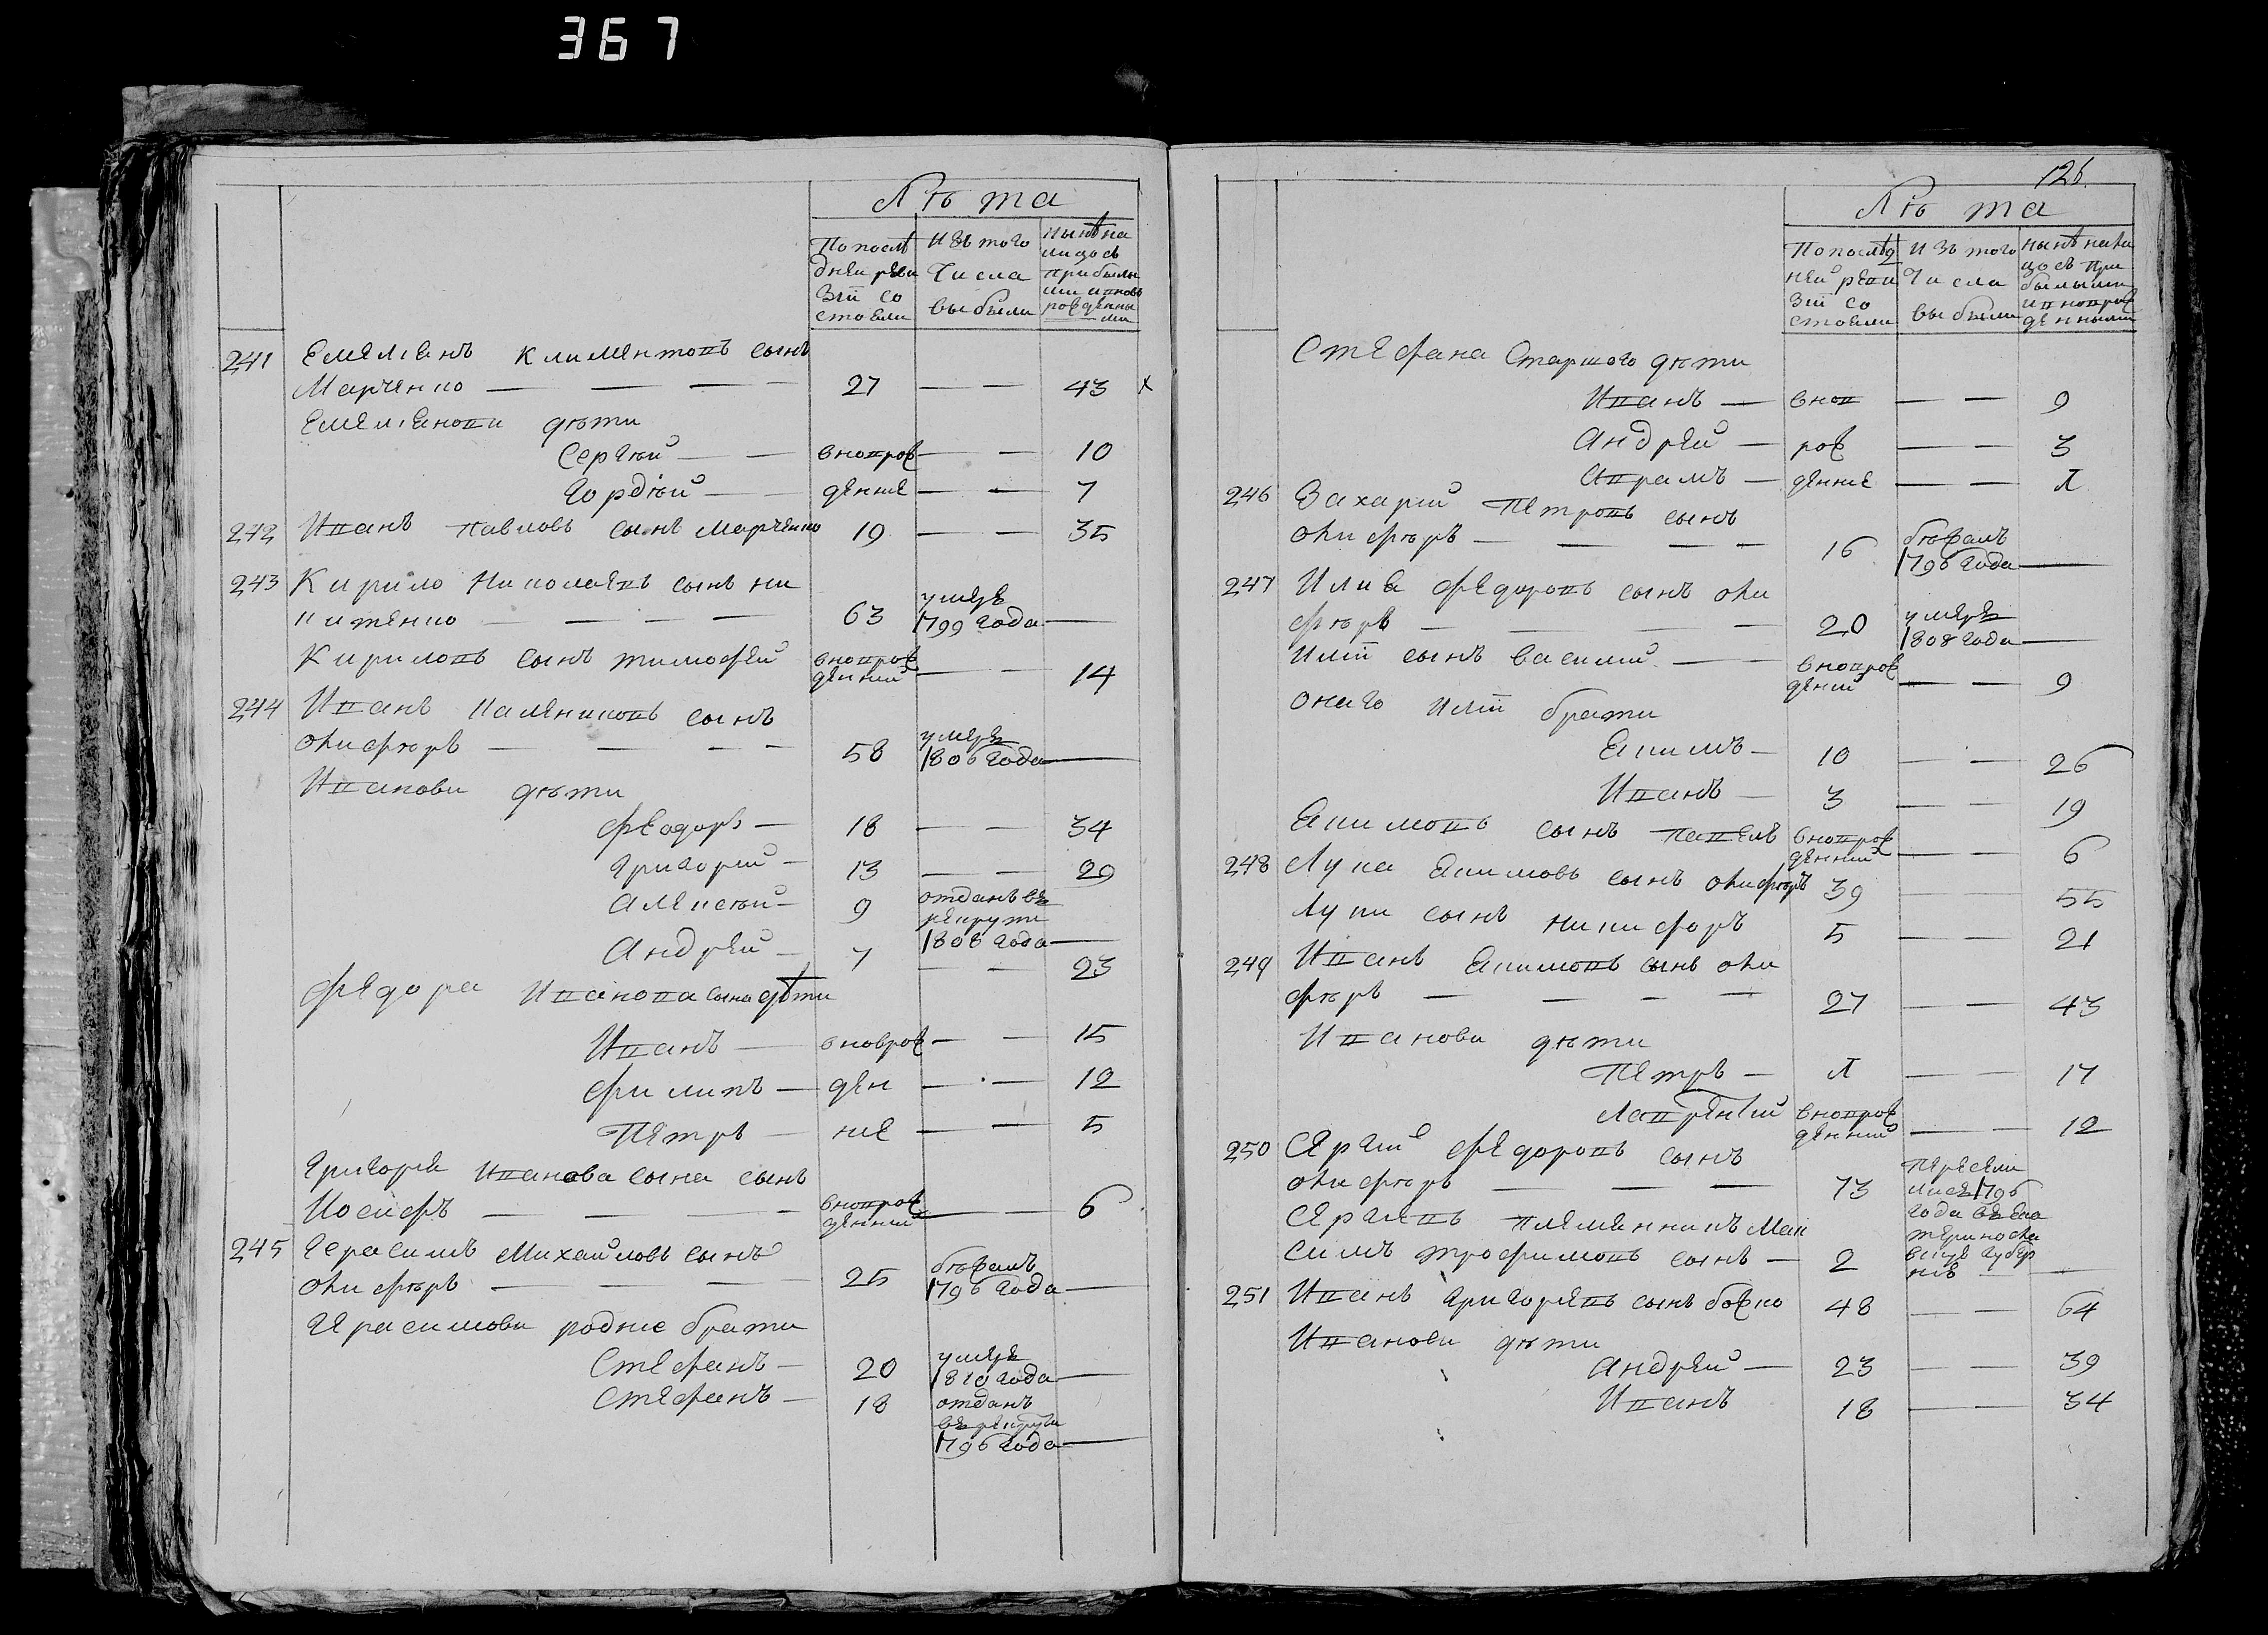 367
Лѣта
По послѣ
дней реви
зіи со
стояли
Изъ того
числа
выбыли
Нынѣ на
лицо съ
прибылы
ми и новъ
рожденны
ми
241 Емелиянъ Климентовъ сынъ
Марченко — — — 27 — — 43 х
Емелияновы дѣти
Сергѣй — — вноврож — — 10
Гордѣй — — денние — — 7
242 Иванъ Павловъ сынъ Марченко 19 — — 35
243 Кирило Николаевъ сынъ Ни
китенко — — — — 63 умеръ
1799 года —
Кириловъ сынъ Тимофей вноврож
денний — — 14
244 Иванъ Калениковъ сынъ
58 умеръ
1806 года —
Иванови дѣти
Феодоръ — 18 — — 34
Григорий — 13 — — 29
Алексѣй — 9 отданъ въ
рекрути
1808 года —
Андрей — 7 — — 23
Федора Иванова сына дѣти
Иванъ — вноврож — — 15
Филипъ — ден — — 12
Петръ — ние — — 5
Григория Иванова сына сынъ
Иосифъ — — — вноврож
денний — — 6
245 Герасимъ Михайловъ сынъ
25 бѣжалъ
1796 года —
Герасимови родние брати
Стефанъ — 20 умеръ
1810 года —
Стефанъ — 18 отданъ
въ рекрути
1796 года —
126.
Лѣта
По послѣд
ней реви
зіи со
стояли
Изъ того
числа
выбыли
Нынѣ на ли
цо съ при
былыми
и вноврож
денными
Стефана Старшого дѣти
Иванъ — внов — — 9
Андрей — рож — — 3
Аврамъ — денние — — 1/2
246 Захарий Петровъ сынъ
16 бѣжалъ
1796 года —
247 Илия Федоровъ сынъ
20 умеръ
1808 года —
Иліи сынъ Василий — — вноврож
дений — — 9
Онаго Иліи брати
Екимъ — 10 — — 26
Иванъ — 3 — — 19
Екимовъ сынъ Павелъ вноврож
денний — — 6
248 Лука Екимовъ сынъ 39 — — 55
Луки сынъ Никифоръ 5 — — 21
249 Иванъ Екимовъ сынъ
27 — — 43
Иванови дѣти
Петръ — 1/2 — — 17
Лаврентий вноврож
денний — — 12
250 Сергий Федоровъ сынъ
73 Пересели
лися 1796
года въ Ека
терино
Губер
нию
Сергиевъ племенникъ Мак
симъ Трофимовъ сынъ — 2 —
251 Иванъ Григориевъ сынъ Божко 48 — — 64
Иванови дѣти
Андрей — 23 — — 39
Иванъ 18 — — 34